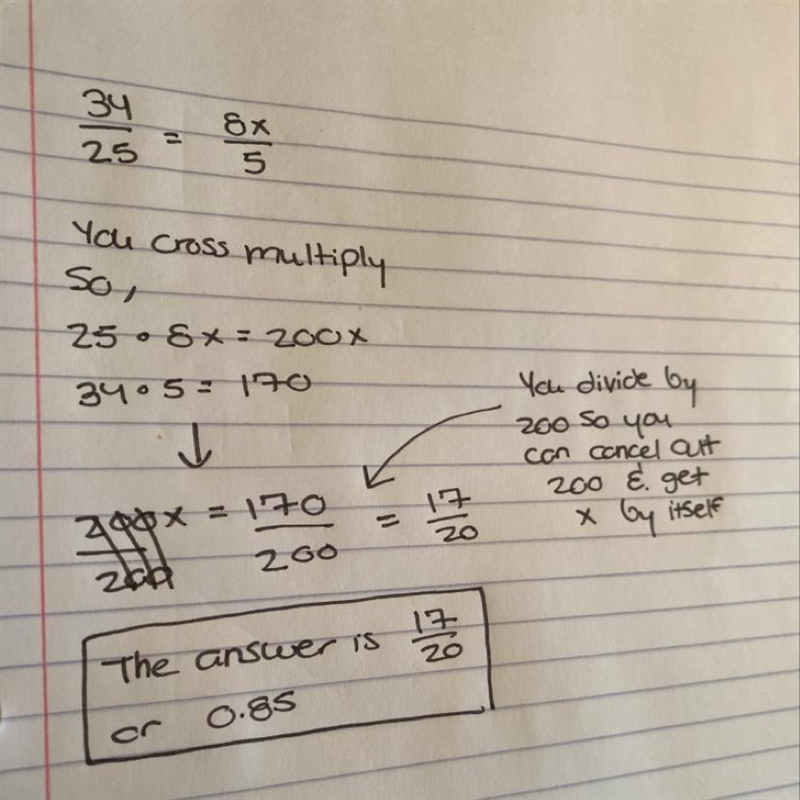 34/25 = 8x/5
You cross multiply
So,
25 • 8x = 200x
34 • 5 = 170
↓
200x/200 = 170/200 = 17/20
You divide by
200 so you
can cancel out
200 & get
x by itself
The answer is 17/20
or 0.85